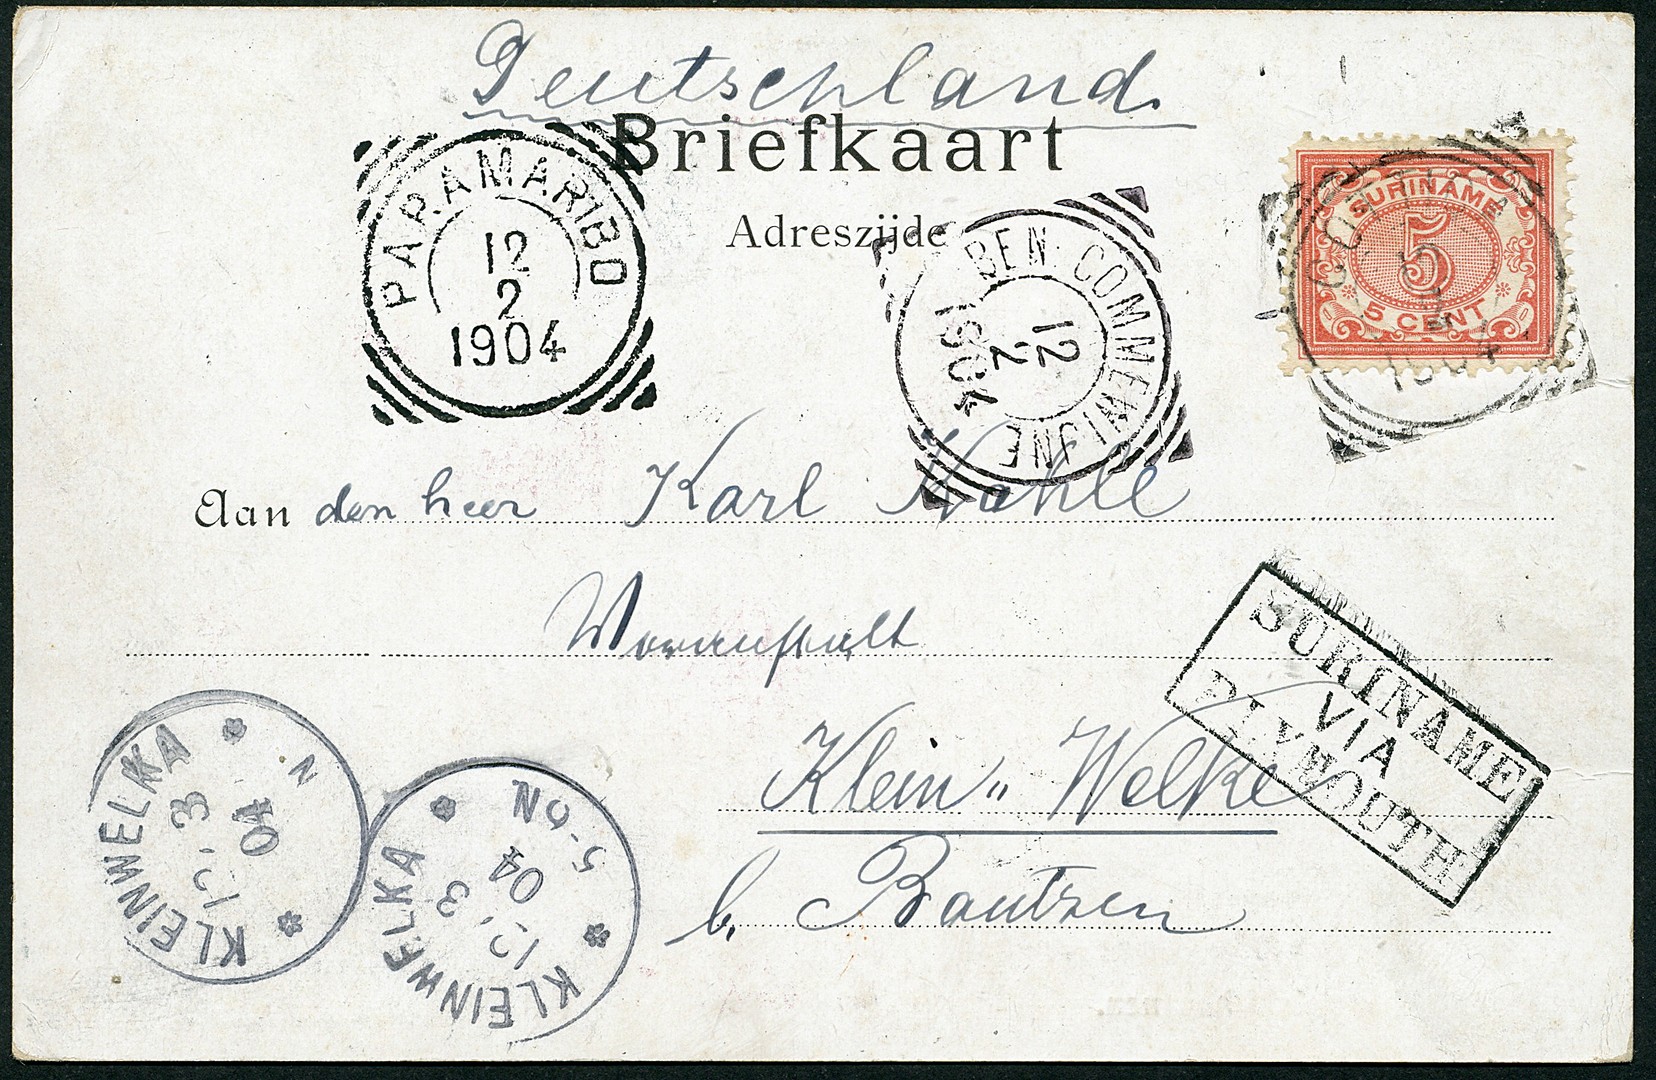 Deutschland.
Briefkaart
Adreszijde
PARAMARIBO
12
2
1904
BEN. COMMEWIJNE
12
2
1904
SURINAME
5
5 CENT
COTTICA
1904
Aan den heer Karl Kahle
Klein" Welke
b. Bautzen
SURINAME
VIA
PLYMOUTH
KLEINWELKA
3
04
N
KLEINWELKA
3
04
5-6N